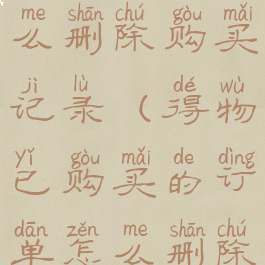 me shān chú gòu mǎi
么删除购买
jì lù dé wù
记录（得物
yǐ gòu mǎi de dìng
已购买的订
dān zěn me shān chú
单怎么删除